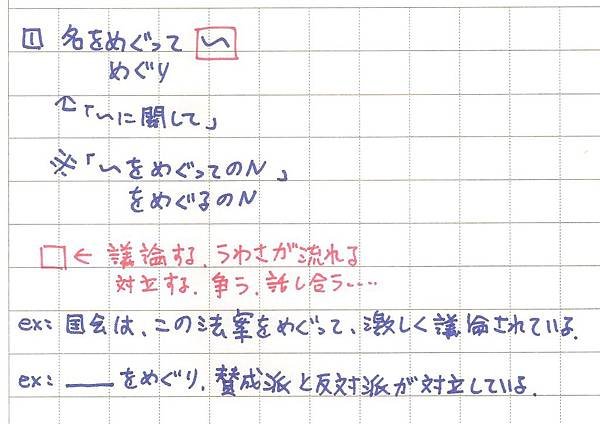 ① 名をめぐって 〜
めぐり
↑「〜に関して」
※「〜をめぐってのN」
をめぐるのN
□← 議論する、うわさが流れる
対立する、争う、話し合う……
ex: 国会は、この法案をめぐって、激しく議論されている.
ex: ___をめぐり、賛成派と反対派が対立している.